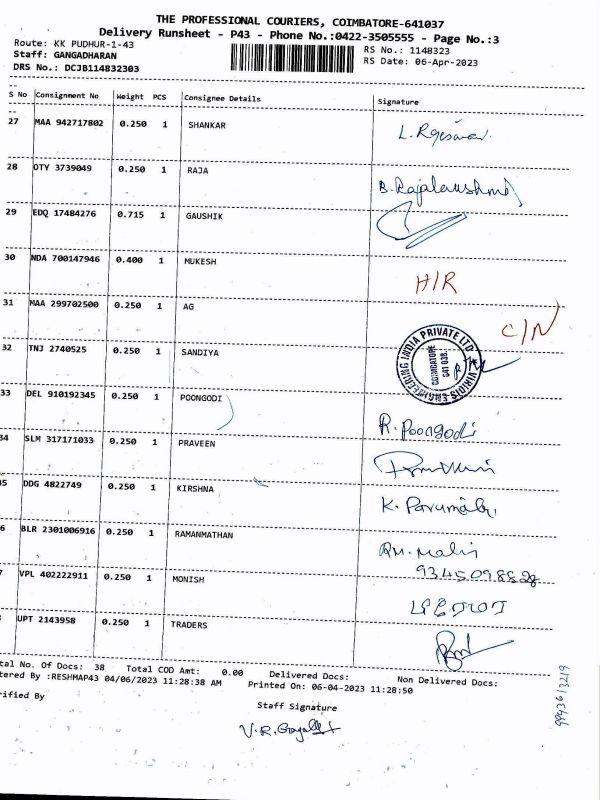 THE PROFESSIONAL COURIERS, COIMBATORE-641037
Delivery Runsheet - P43 - Phone No.:0422-3505555 - Page No.:3
Route: KK PUDHUR-1-43
RS No.: 1148323
Staff: GANGADHARAN
RS Date: 06-Apr-2023
DRS No.: DCJB114832303
S No Consignment No Weight PCS Consignee Details Signature
27 MAA 942717802 0.250 1 SHANKAR
28 OTY 3739049 0.250 1 RAJA
29 EDQ 17484276 0.715 1 GAUSHIK
30 NDA 700147946 0.400 1 MUKESH H/R
31 MAA 299702500 0.250 1 AG C/N
32 TNJ 2740525 0.250 1 SANDIYA
33 DEL 910192345 0.250 1 POONGODI R. Poongodi
34 SLM 317171033 0.250 1 PRAVEEN
35 DDG 4822749 0.250 1 KIRSHNA
6 BLR 2301006916 0.250 1 RAMANMATHAN
7 VPL 402222911 0.250 1 MONISH
UPT 2143958 0.250 1 TRADERS
tal No. Of Docs: 38 Total COD Amt: 0.00 Delivered Docs: Non Delivered Docs:
tered By :RESHMAP43 04/06/2023 11:28:38 AM Printed On: 06-04-2023 11:28:50
rified By
Staff Signature